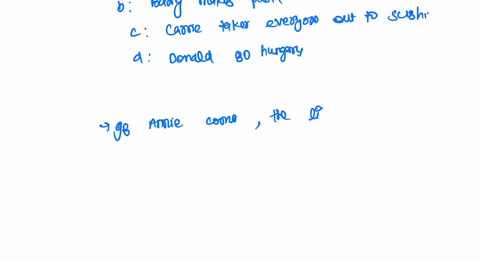 b: makes
c: Carrie taker everyone out to sushi
d: Donald go hungary
→ If Annie come, the li